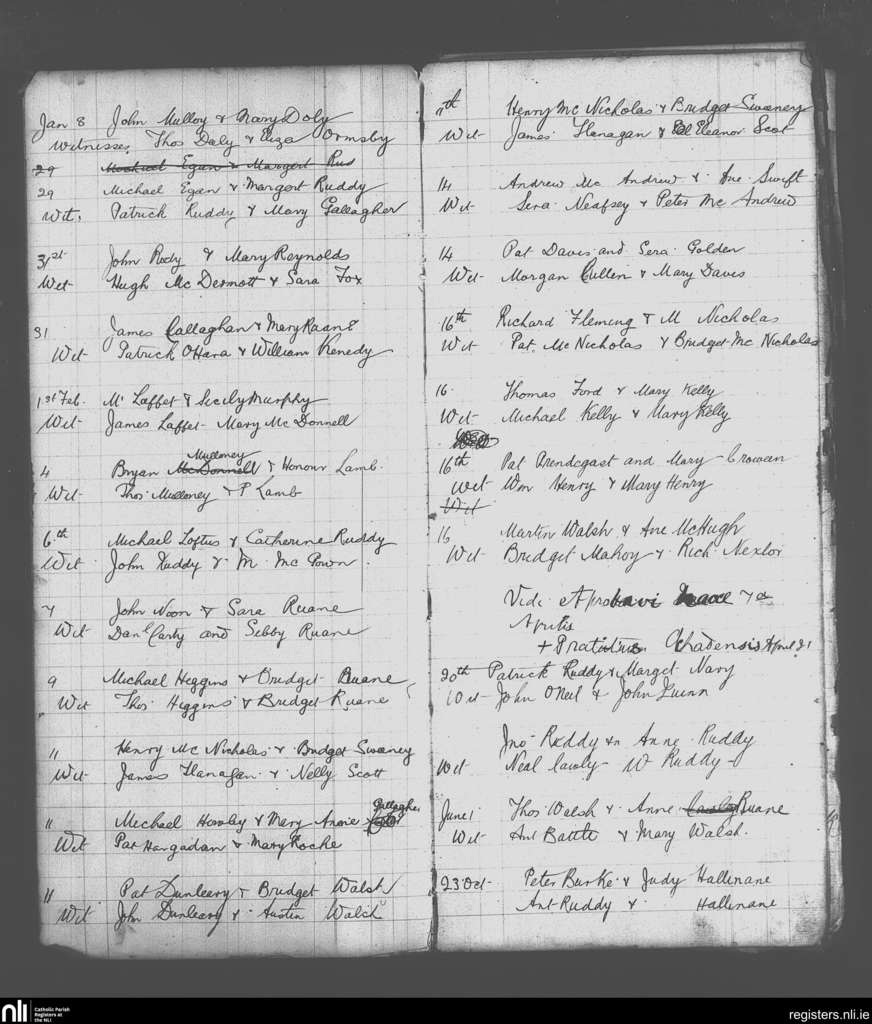 Jan 8 John Mulloy & Mary Doly
Witnesses, Thos Daly & Eliza Ormsby
29 Michael Egan & Margert Rud
29 Michael Egan & Margert Ruddy
Wit, Patrick Ruddy & Mary Gallagher
31st John Rody & Mary Reynolds
Wit Hugh McDermott & Sara Fox
31 James Callaghan & Mary Ruane
Wit Patrick OHara & William Kenedy
1st Feb. Ml Laffet & Sicily Murphy
Wit James Laffet Mary McDonnell
Mulloney
4 Bryan McDonnell & Honour Lamb.
Wit Thos Mulloney & P Lamb
6th Michael Loftus & Catherine Ruddy
Wit John Ruddy & M. McGown.
7 John Noon & Sara Ruane
Wit Danl Carty and Sibby Ruane
9 Michael Higgins & Bridget Ruane
Wit Thos Higgins & Bridget Ruane
11 Henry McNicholas & Bridget Sweeney
Wit James Flanagan & Nelly Scott
Gallagher
11 Michael & Mary Annie
Wit Pat Hargadan & Mary Roche
11 Pat Dunleavy & Bridget Walsh
Wit John Dunleavy & Austin Walsh
11th Henry McNicholas & Bridget Sweeney
Wit James Flanagan & Eleanor Scot
14 Andrew McAndrew & Ane Swift
Wit Sera Neafsey & Peter McAndrew
14 Pat Davis and Sera Golden
Wit Morgan Cullen & Mary Davis
16th Richard Fleming & M Nicholas
Wit Pat. McNicholas & Bridget McNicholas
16. Thomas Ford & Mary Kelly
Wit Michael Kelly & Mary Kelly
16th Pat Prendegast and Mary Crowean
Wit Wm Henry & Mary Henry
Wit
16 Martin Walsh & Ane McHugh
Wit Bridget Mahoy & Rich. Nexlor
Vidi Aprobavi 7a
Aprilis
+ Achadensis April 21
20th Patrick Ruddy & Marget Nary
Wit John ONeil & John Quinn
Jno Ruddy & Anne Ruddy
Wit Neal Cawly W Ruddy
June 1 Thos Walsh & Anne Ruane
Wit Ant Battle & Mary Walsh.
23 Oct Peter Burke & Judy Hallinane
Ant Ruddy & Hallinane
nli Catholic Parish
Registers at
the NLI
registers.nli.ie